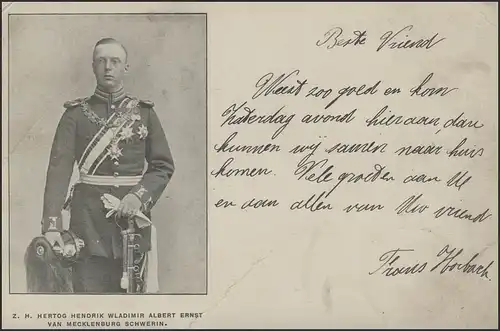 Beste Vriend
Weest zoo goed en kom
Zaterdag avond hieraan, dan
kunnen wij samen naar huis
komen. Vele groeten aan U
en aan allen van Uw vriend
Frans
Z. H. HERTOG HENDRIK WLADIMIR ALBERT ERNST
VAN MECKLENBURG SCHWERIN.